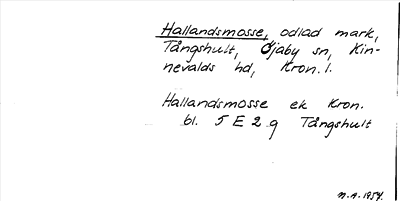 Hallandsmosse, odlad mark,
Tångshult, Öjaby sn, Kin-
nevalds hd, Kron. l.
Hallandsmosse ek Kron.
bl. 5 E 2 g Tångshult
N.A. 1954.